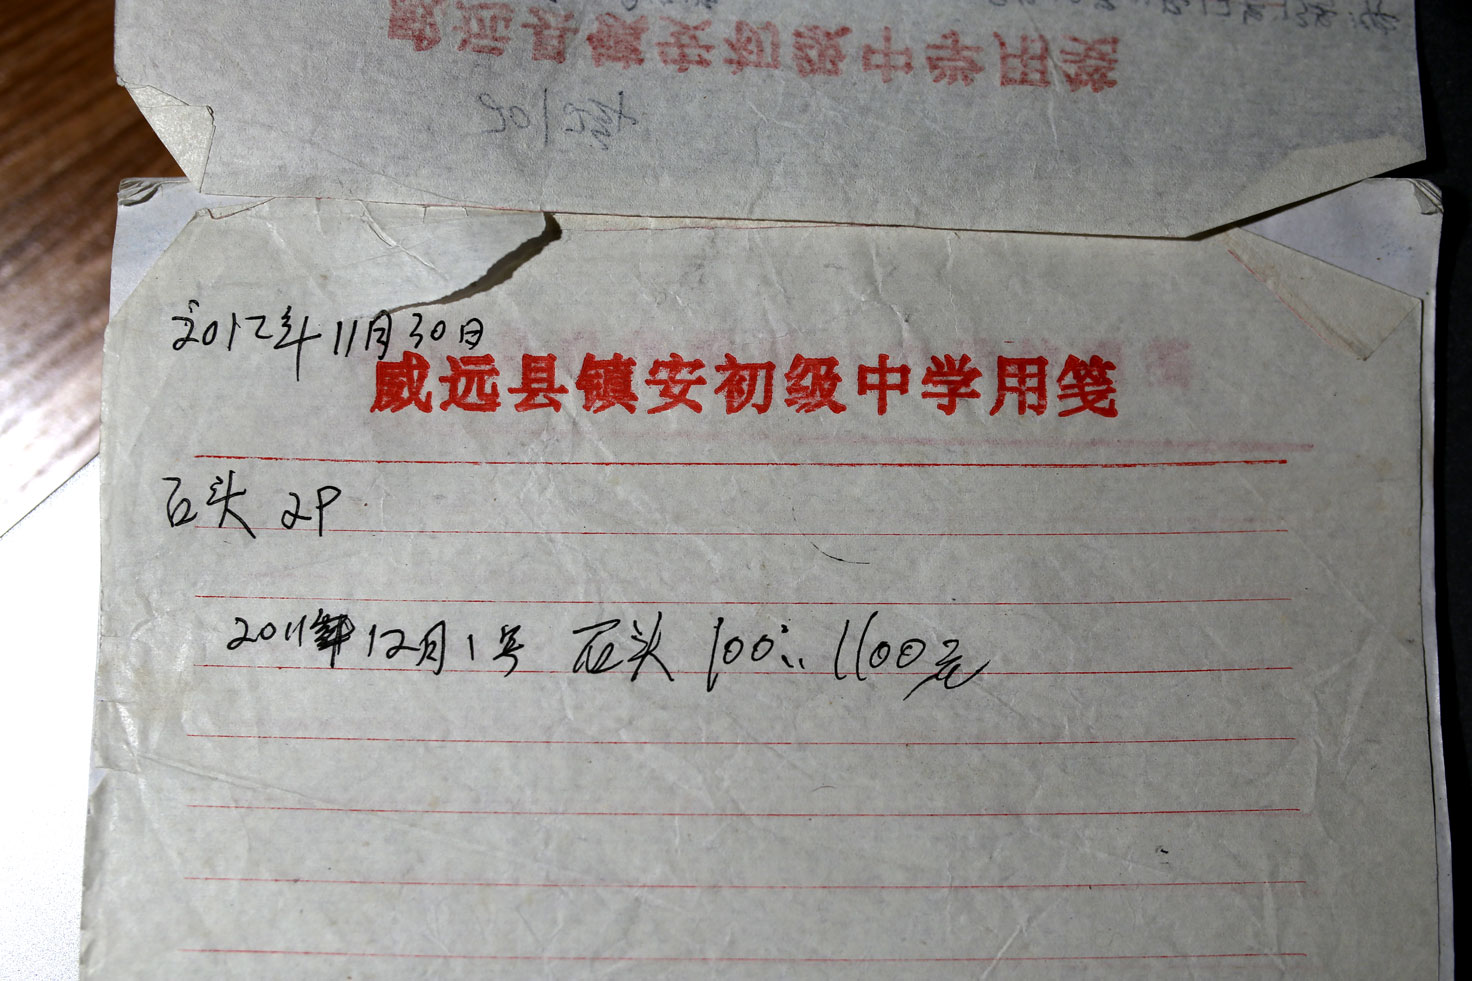 威远县镇安初级中学用笺
2012年11月30日
威远县镇安初级中学用笺
石头 2P
2011年12月1号 石头 100 1100元